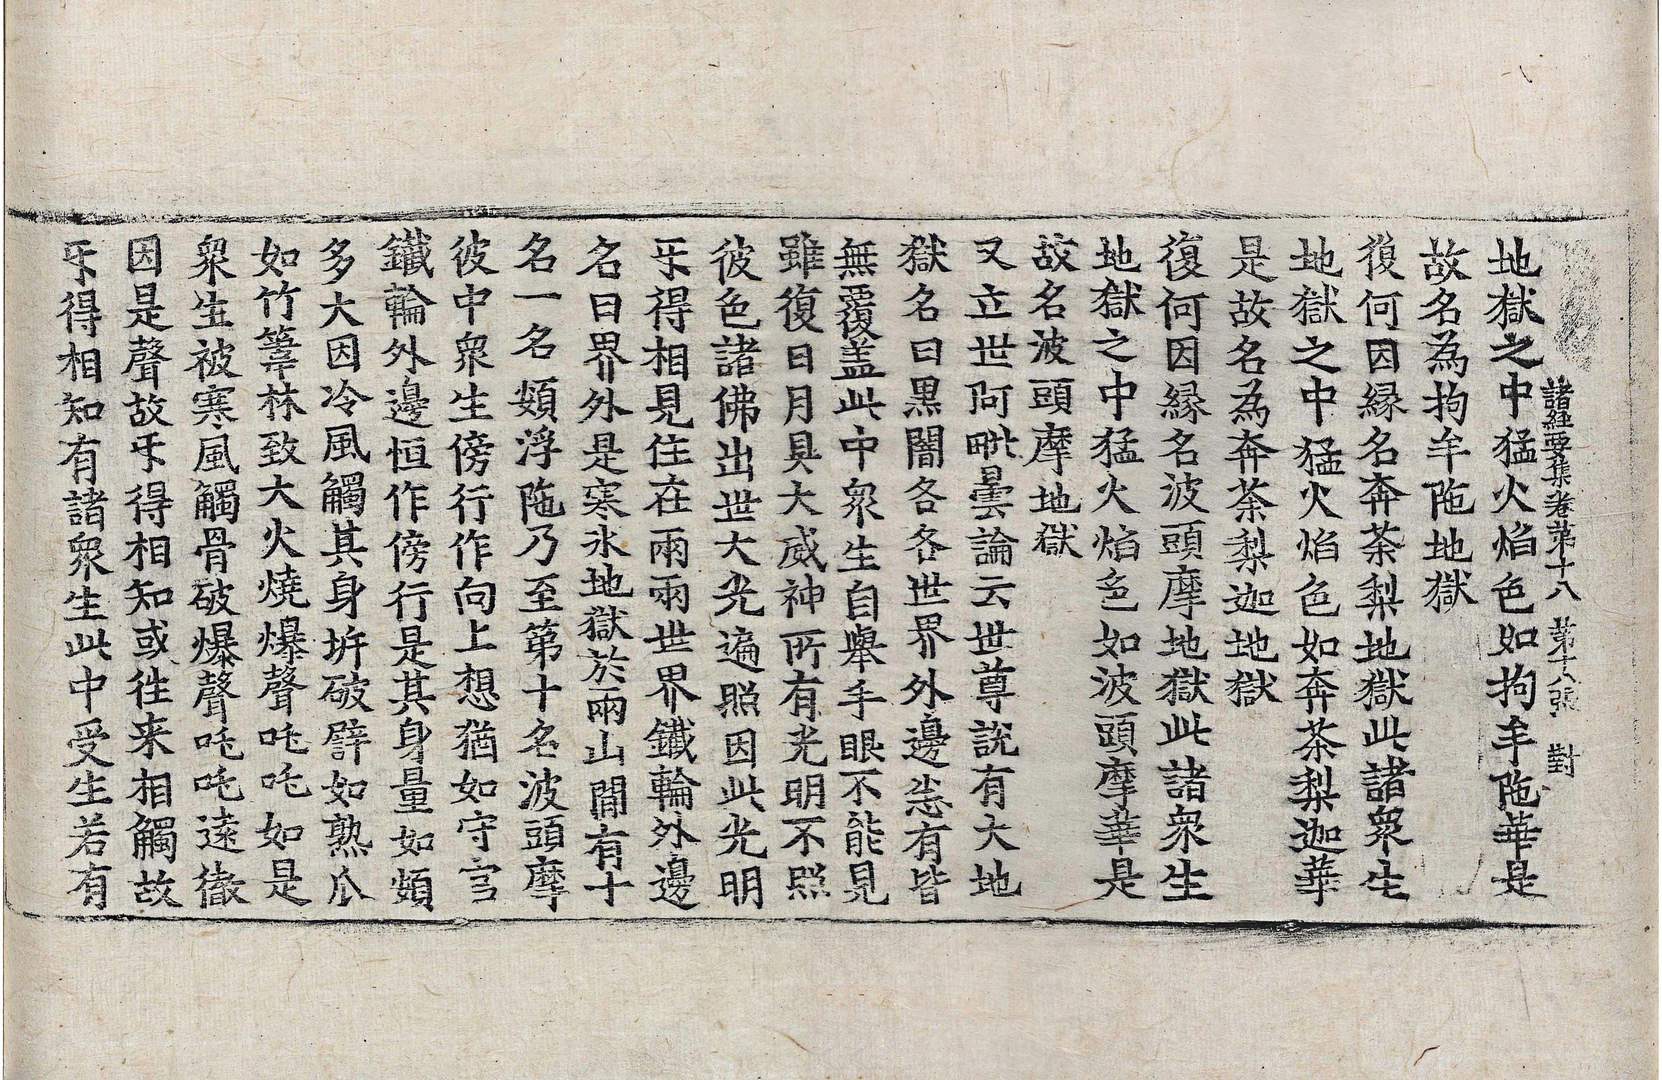 諸經要集卷第十八 第十八張 對
地獄之中猛火焰色如拘牟陁華是
故名為拘牟陁地獄
復何因縁名奔荼梨地獄此諸衆生
地獄之中猛火焰色如奔茶梨迦華
是故名為奔荼梨迦地獄
復何因縁名波頭摩地獄此諸衆生
地獄之中猛火焰色如波頭摩華是
故名波頭摩地獄
又立世阿毗曇論云世尊説有大地
獄名曰黒闇各各世界外邊悉有皆
無覆盖此中衆生自舉手眼不能見
雖復日月具大威神所有光明不照
彼色諸佛出世大光遍照因此光明
互得相見住在兩兩世界鐵輪外邊
名曰界外是寒氷地獄於兩山間有十
名一名頞浮陁乃至第十名波頭摩
彼中衆生傍行作向上想猶如守宫
鐵輪外邊恒作傍行是其身量如頞
多大因冷風觸其身坼破譬如熟瓜
如竹葦林致大火燒爆聲吒吒如是
衆生被寒風觸骨破爆聲吒吒遠徹
因是聲故互得相知或徃来相觸故
互得相知有諸衆生此中受生若有